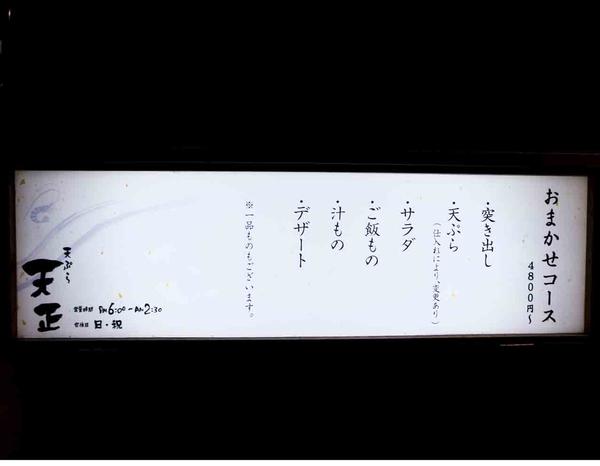 おまかせコース
4800円〜
・突き出し
・天ぷら
(仕入れにより、変更あり)
・サラダ
・ご飯もの
・汁もの
・デザート
※一品ものもございます。
天ぷら
天正
営業時間 PM6:00〜AM2:30
定休日 日・祝